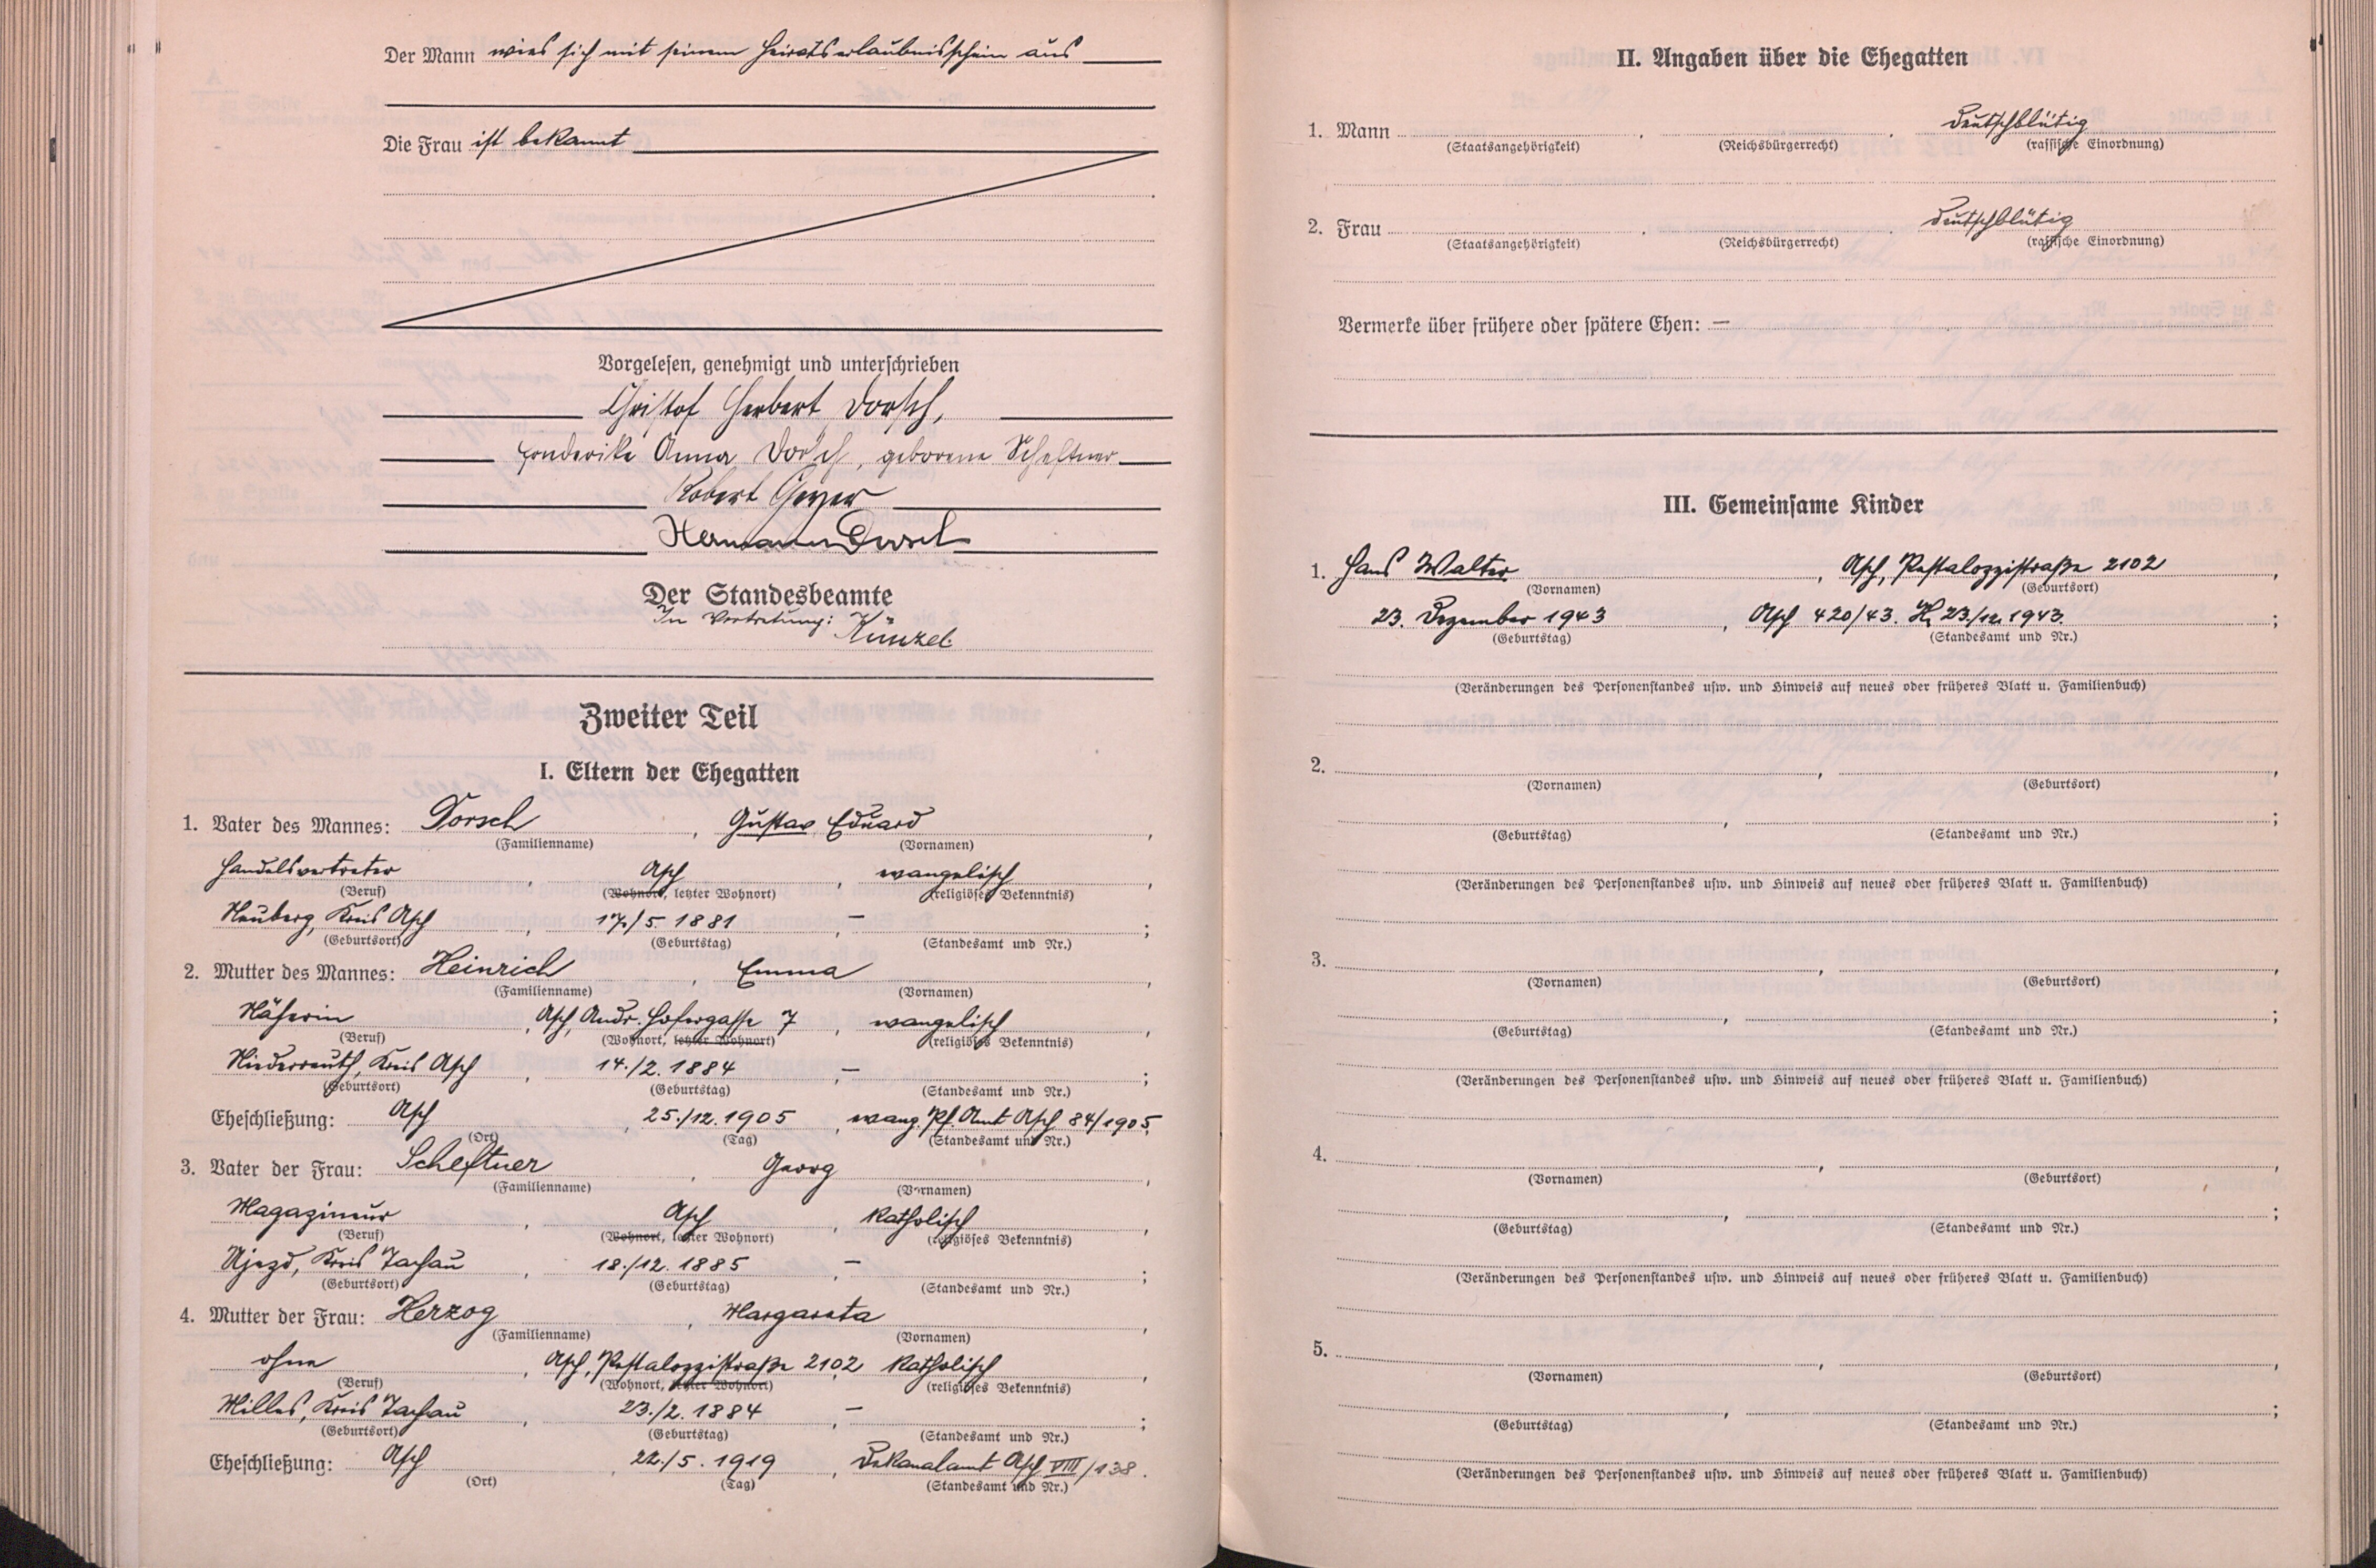 Der Mann wies sich mit seinem Heiratserlaubnisschein aus
Die Frau ist bekannt
Vorgelesen, genehmigt und unterschrieben
Christof Herbert Dorsch,
Anna Dorsch, geborene Scheftner
Robert Geyer
Hermann Dorsch
Der Standesbeamte
In Vertretung: Künzel
Zweiter Teil
I. Eltern der Ehegatten
1. Vater des Mannes: Dorsch, Gustav Eduard,
(Familienname) (Vornamen)
Handelsvertreter, Asch, evangelisch,
(Beruf) (Wohnort, letzter Wohnort) (religiöses Bekenntnis)
Neuberg, Kreis Asch, 17./5. 1881, —;
(Geburtsort) (Geburtstag) (Standesamt und Nr.)
2. Mutter des Mannes: Heinrich, Emma,
(Familienname) (Vornamen)
Näherin, Asch, Andr. Hofergasse 7, evangelisch,
(Beruf) (Wohnort, letzter Wohnort) (religiöses Bekenntnis)
Niederreuth, Kreis Asch, 14./2. 1884, —;
(Geburtsort) (Geburtstag) (Standesamt und Nr.)
Eheschließung: Asch, 25./12. 1905, evang. Pf. Amt Asch 84/1905.
(Ort) (Tag) (Standesamt und Nr.)
3. Vater der Frau: Scheftner, Georg,
(Familienname) (Vornamen)
Magazineur, Asch, katholisch,
(Beruf) (Wohnort, letzter Wohnort) (religiöses Bekenntnis)
Ujezd, Kreis Tachau, 18./12. 1885, —;
(Geburtsort) (Geburtstag) (Standesamt und Nr.)
4. Mutter der Frau: Herzog, Margareta,
(Familienname) (Vornamen)
ohne, Asch, Pestalozzistraße 2102, katholisch,
(Beruf) (Wohnort, letzter Wohnort) (religiöses Bekenntnis)
Milles, Kreis Tachau, 23./2. 1884, —;
(Geburtsort) (Geburtstag) (Standesamt und Nr.)
Eheschließung: Asch, 22./5. 1919, Dekanalamt Asch VIII/138.
(Ort) (Tag) (Standesamt und Nr.)
II. Angaben über die Ehegatten
1. Mann , , deutschblütig
(Staatsangehörigkeit) (Reichsbürgerrecht) (rassische Einordnung)
2. Frau , , deutschblütig
(Staatsangehörigkeit) (Reichsbürgerrecht) (rassische Einordnung)
Vermerke über frühere oder spätere Ehen: —
III. Gemeinsame Kinder
1. Hans Walter, Asch, Pestalozzistraße 2102,
(Vornamen) (Geburtsort)
23. Dezember 1943, Asch 420/43. 23./12. 1943.;
(Geburtstag) (Standesamt und Nr.)
(Veränderungen des Personenstandes usw. und Hinweis auf neues oder früheres Blatt u. Familienbuch)
2. , ,
(Vornamen) (Geburtsort)
, ;
(Geburtstag) (Standesamt und Nr.)
(Veränderungen des Personenstandes usw. und Hinweis auf neues oder früheres Blatt u. Familienbuch)
3. , ,
(Vornamen) (Geburtsort)
, ;
(Geburtstag) (Standesamt und Nr.)
(Veränderungen des Personenstandes usw. und Hinweis auf neues oder früheres Blatt u. Familienbuch)
4. , ,
(Vornamen) (Geburtsort)
, ;
(Geburtstag) (Standesamt und Nr.)
(Veränderungen des Personenstandes usw. und Hinweis auf neues oder früheres Blatt u. Familienbuch)
5. , ,
(Vornamen) (Geburtsort)
, ;
(Geburtstag) (Standesamt und Nr.)
(Veränderungen des Personenstandes usw. und Hinweis auf neues oder früheres Blatt u. Familienbuch)